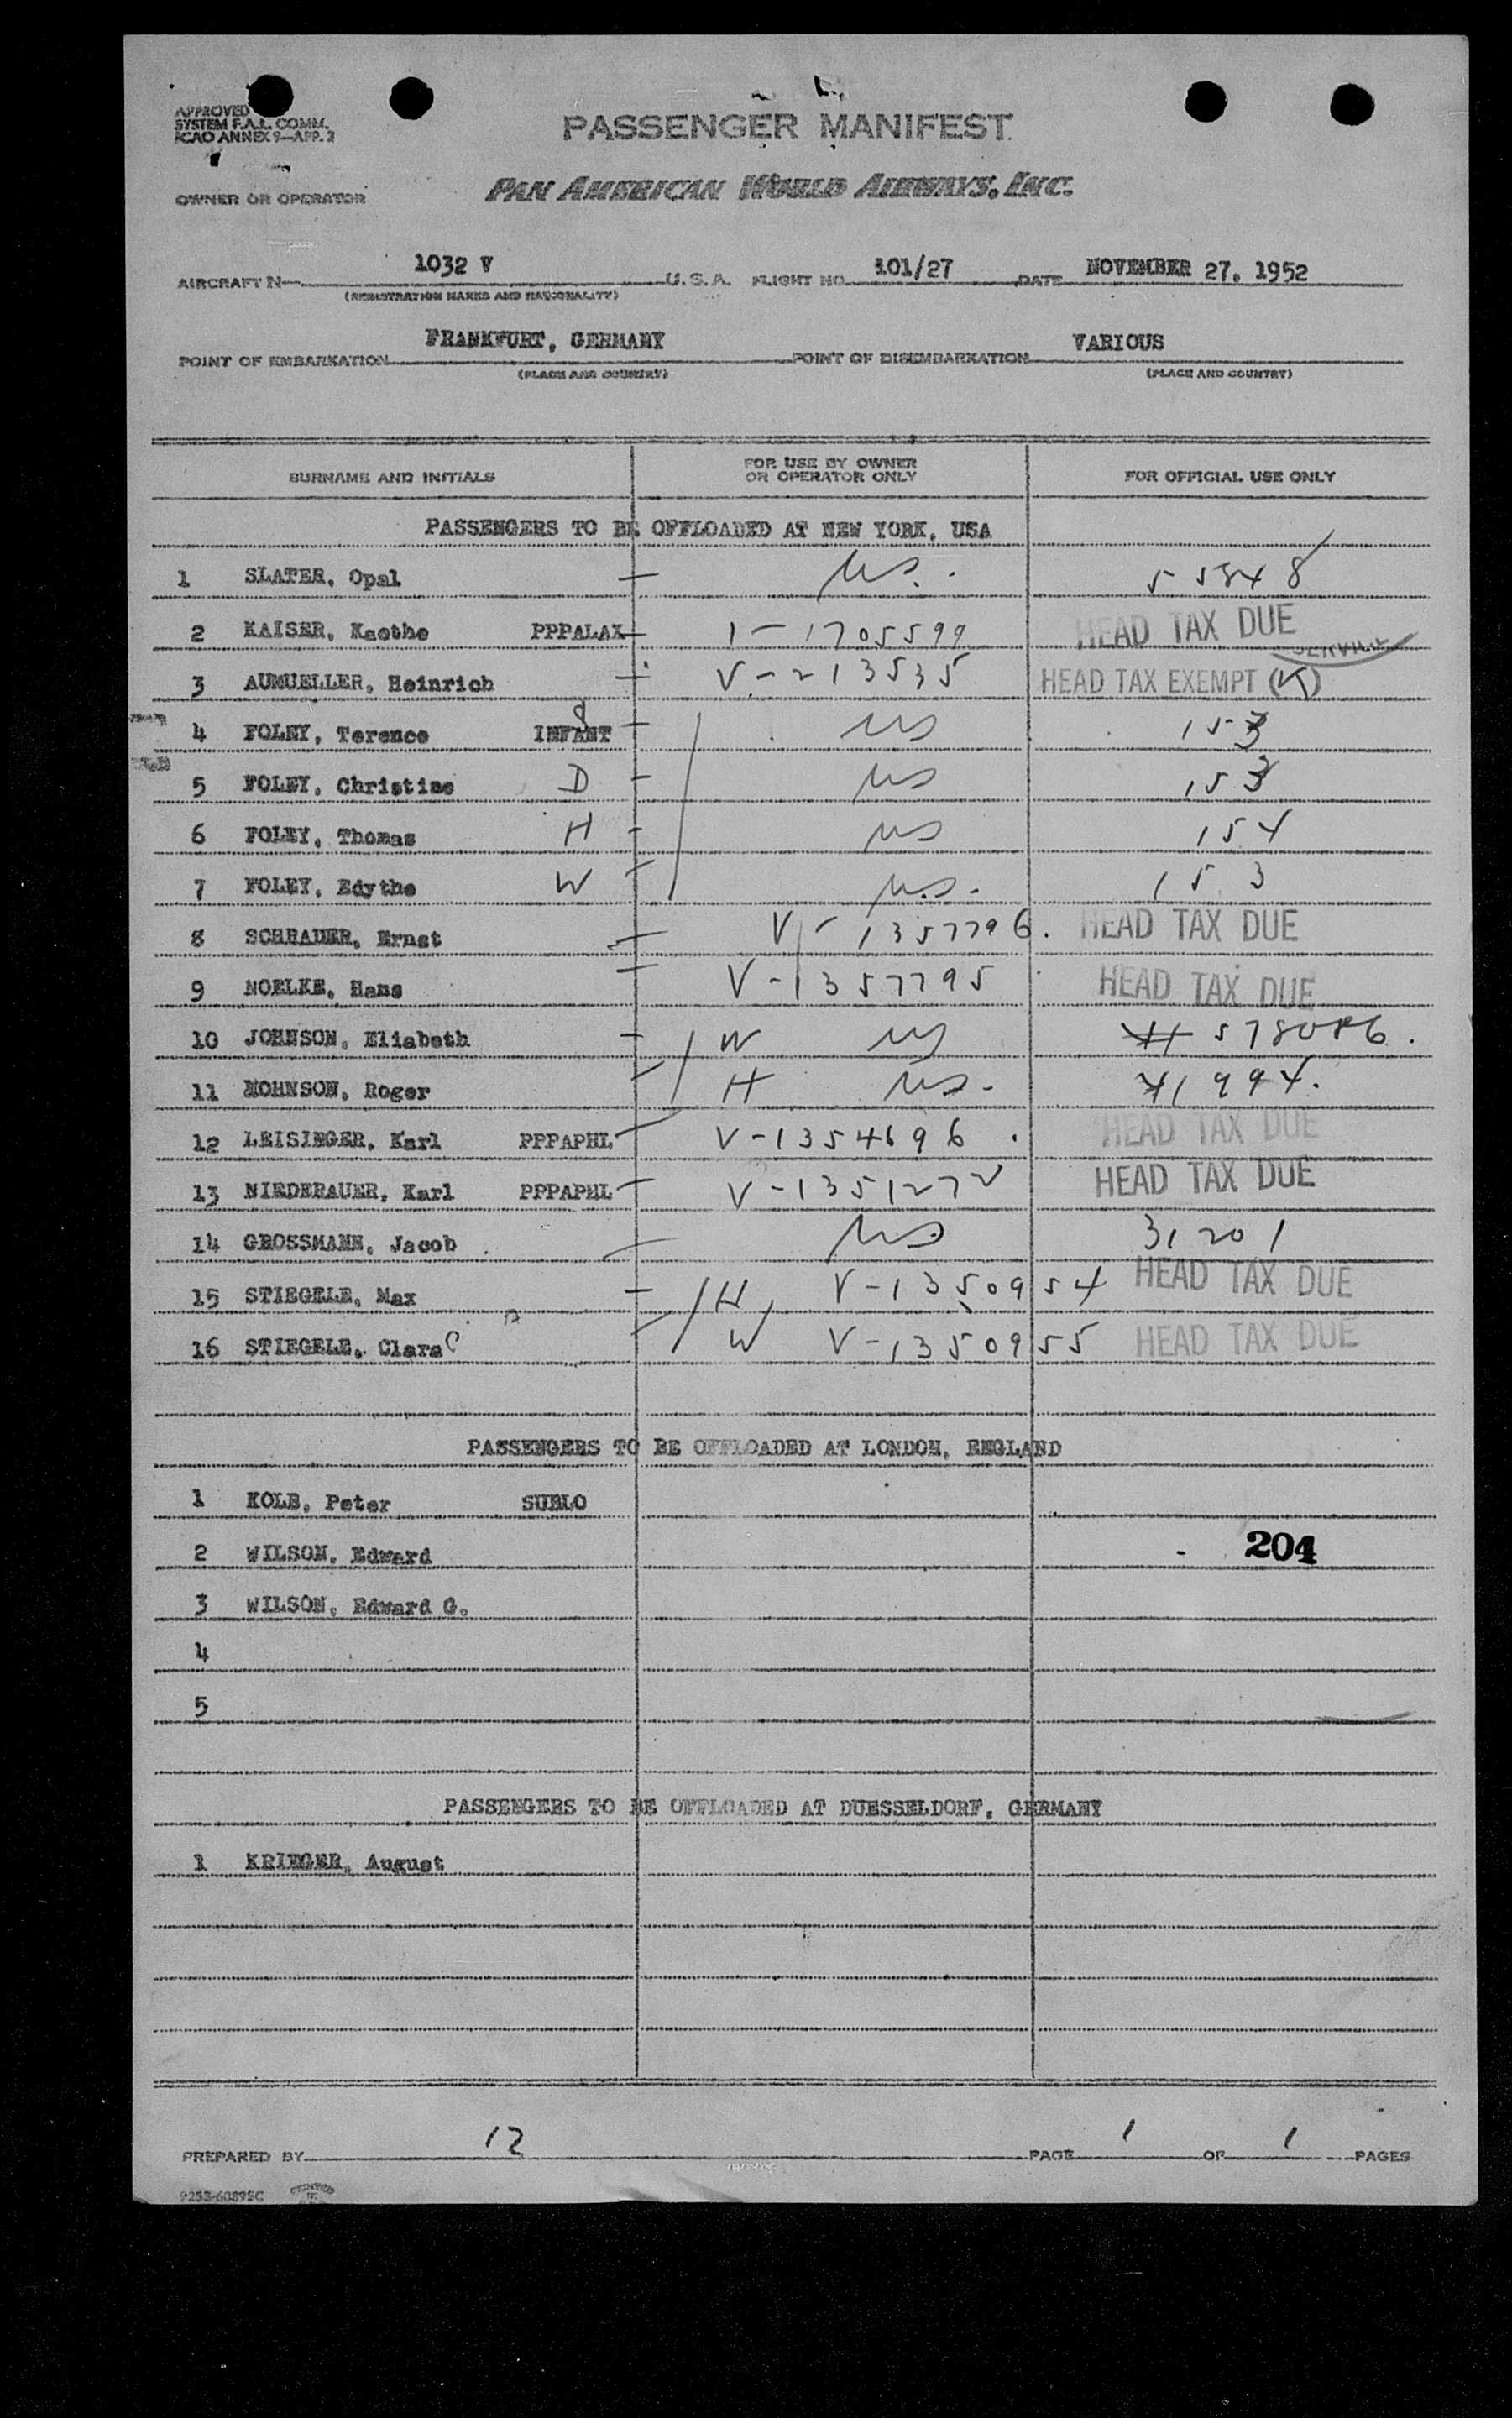 APPROVED
SYSTEM F.A.L. COMM.
ICAO ANNEX 9—APP. 2
PASSENGER MANIFEST
OWNER OR OPERATOR PAN AMERICAN WORLD AIRWAYS, INC.
AIRCRAFT N— 1032 V U.S.A. FLIGHT NO. 101/27 DATE NOVEMBER 27, 1952
(REGISTRATION MARKS AND NATIONALITY)
POINT OF EMBARKATION FRANKFURT, GERMANY POINT OF DISEMBARKATION VARIOUS
(PLACE AND COUNTRY) (PLACE AND COUNTRY)
SURNAME AND INITIALS FOR USE BY OWNER OR OPERATOR ONLY FOR OFFICIAL USE ONLY
PASSENGERS TO BE OFFLOADED AT NEW YORK, USA
1 SLATER, Opal — US. 55848
2 KAISER, Kaethe PPPALAX — 1-1705599 HEAD TAX DUE
3 AUMUELLER, Heinrich — V-213535 HEAD TAX EXEMPT
4 FOLEY, Terence INFANT — US 153
5 FOLEY, Christine D — US 153
6 FOLEY, Thomas H — US 154
7 FOLEY, Edythe W — U.S. 153
8 SCHRADER, Ernst — V-1357796. HEAD TAX DUE
9 NOELKE, Hans — V-1357795 HEAD TAX DUE
10 JOHNSON, Eliabeth — W US 578086.
11 MOHNSON, Roger — H US. 41994.
12 LEISINGER, Karl PPPAPHL — V-1354696. HEAD TAX DUE
13 NIEDERAUER, Karl PPPAPHL — V-1351272 HEAD TAX DUE
14 GROSSMANN, Jacob — US 31201
15 STIEGELE, Max — H V-1350954 HEAD TAX DUE
16 STIEGELE, Clara — W V-1350955 HEAD TAX DUE
PASSENGERS TO BE OFFLOADED AT LONDON, ENGLAND
1 KOLB, Peter SUBLO
2 WILSON, Edward 204
3 WILSON, Edward G.
4
5
PASSENGERS TO BE OFFLOADED AT DUESSELDORF, GERMANY
1 KRIEGER, August
PREPARED BY 12 PAGE 1 OF 1 PAGES
9253-60895C